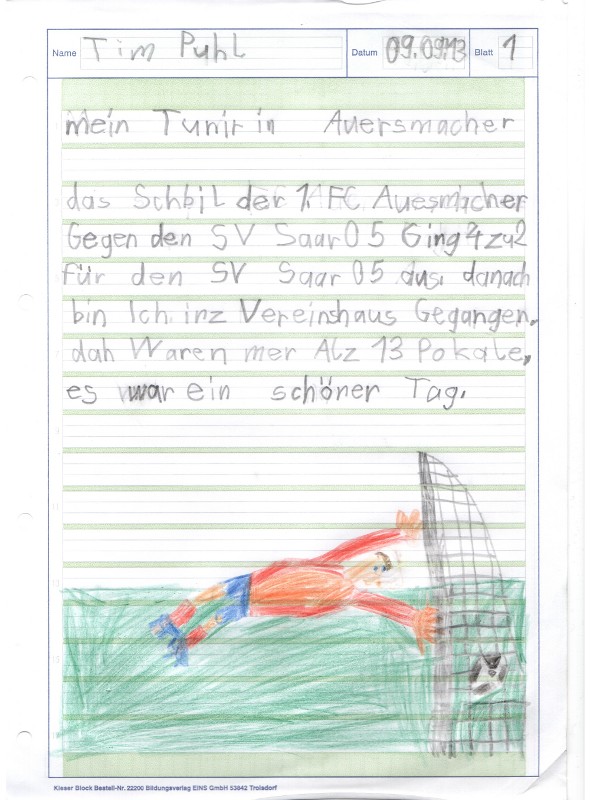 Name Tim Puhl Datum 09.09.13 Blatt 1
Mein Tunir in Auersmacher
das Schbil der 1. FC Auesmacher
Gegen den SV Saar 05 Ging 4 zu 2
für den SV Saar 05 aus. danach
bin Ich inz Vereinshaus Gegangen.
dah Waren mer Alz 13 Pokale.
es war ein schöner Tag.
Kieser Block Bestell-Nr. 22200 Bildungsverlag EINS GmbH 53842 Troisdorf